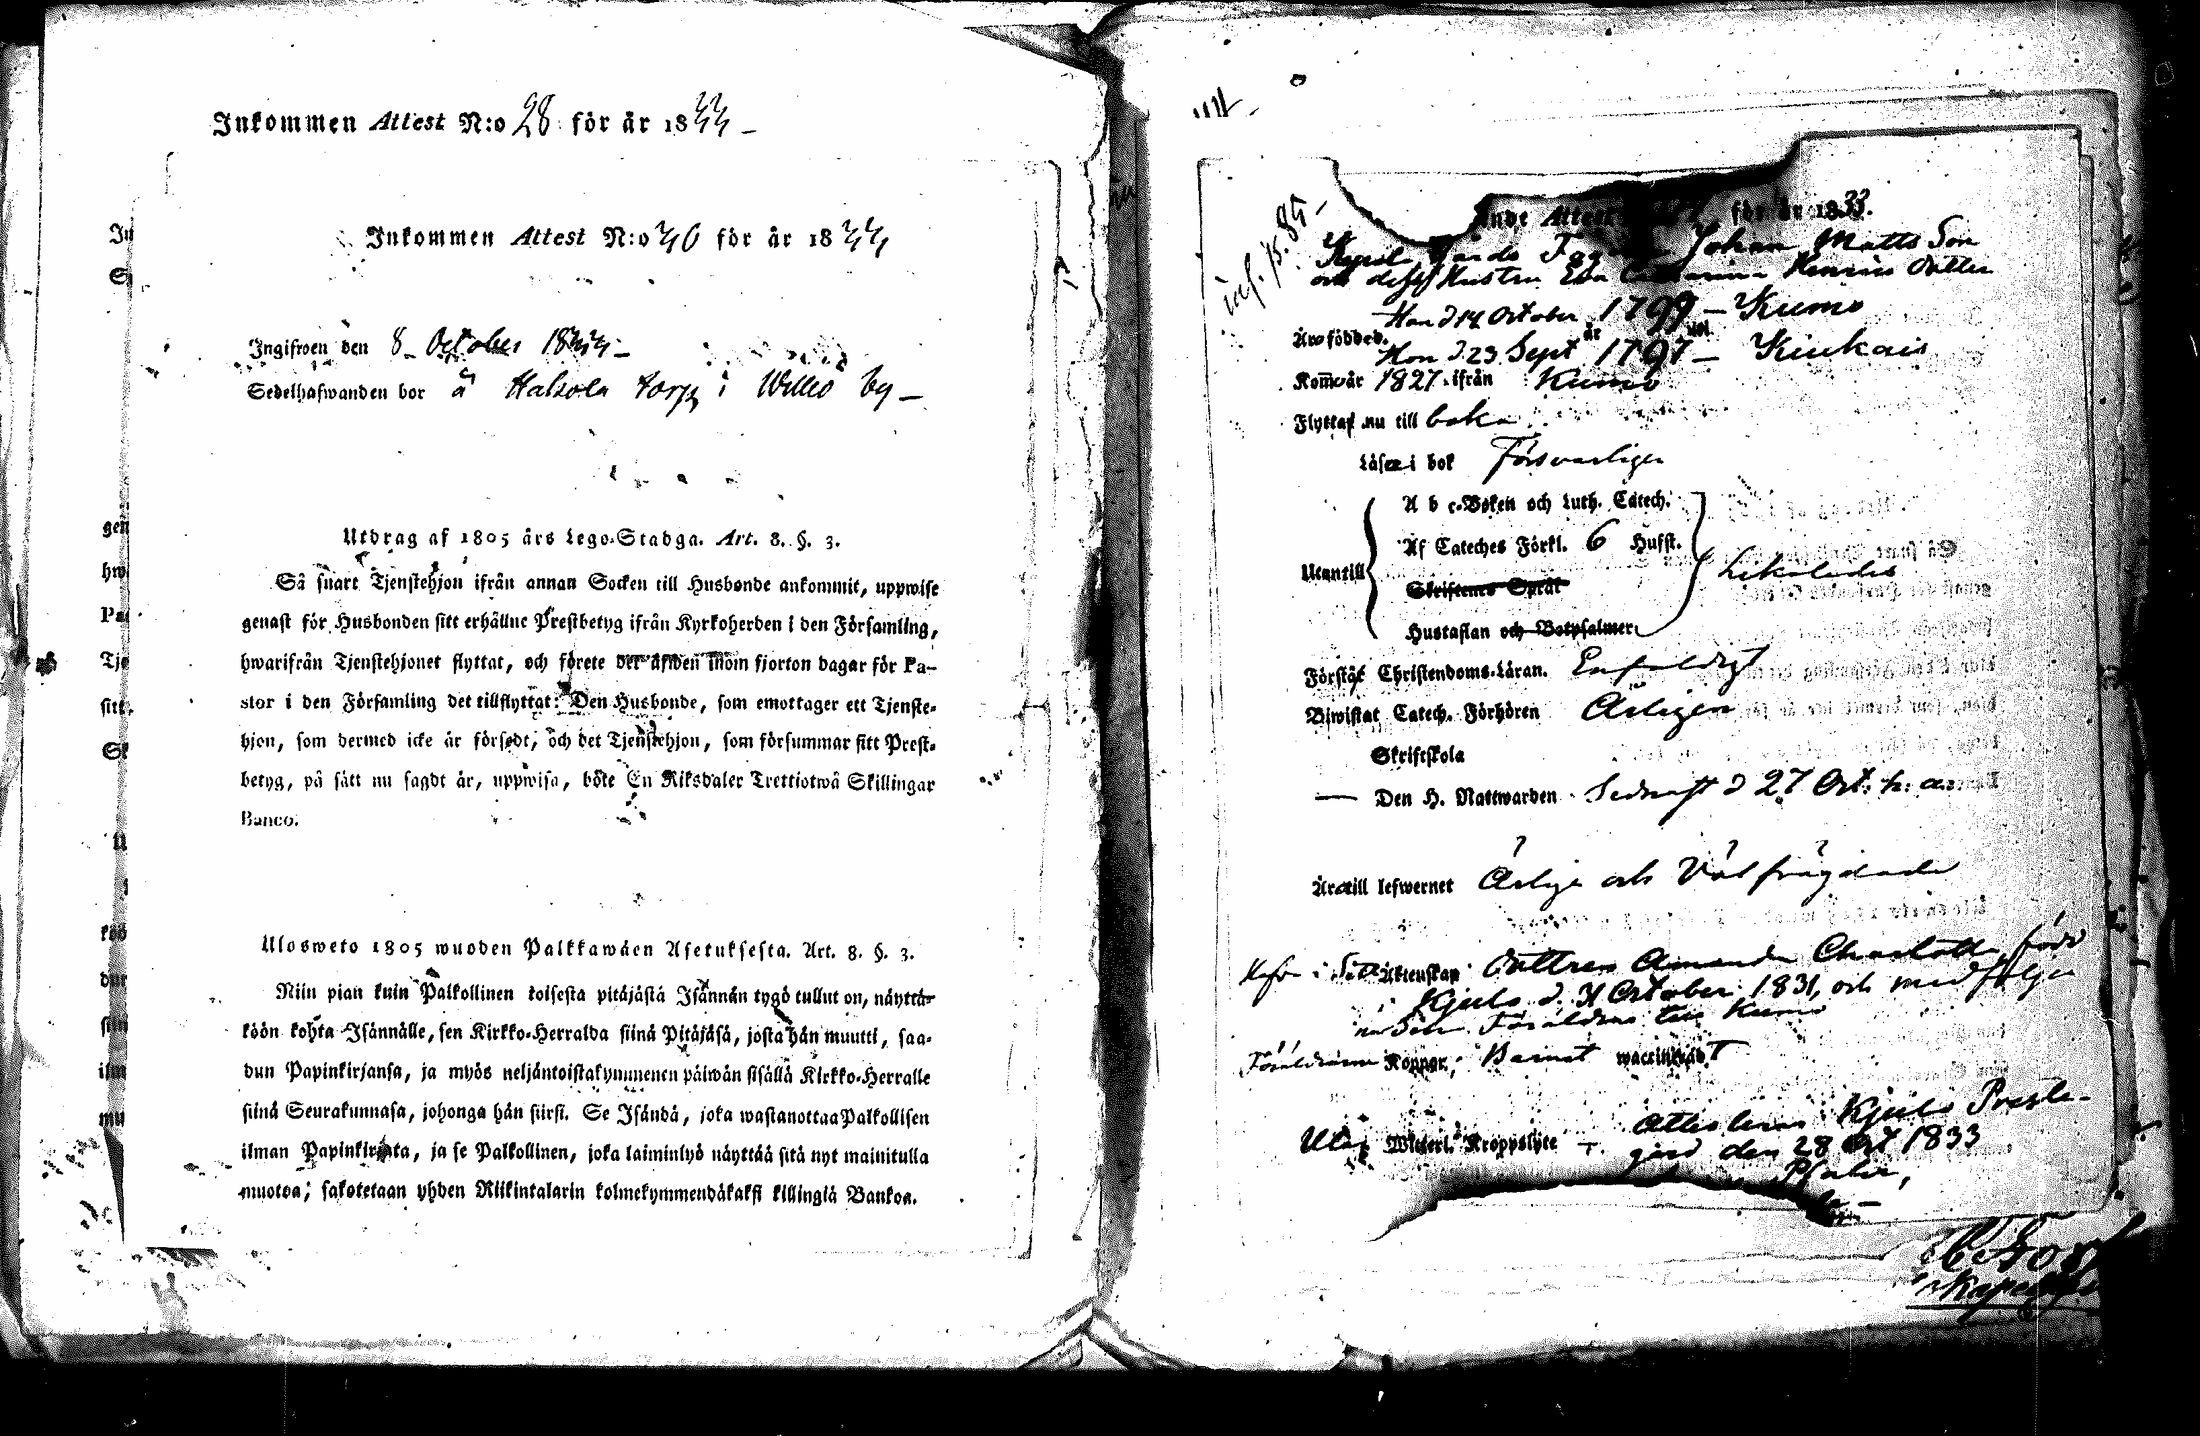 Inkommen Attest N:o 28 för år 1844
Inkommen Attest N:o 46 för år 1844
Ingifwen den 8 October 1844
Sedelhafwanden bor å torp i by
Utdrag af 1805 års Lego-Stadga. Art. 8. §. 3.
Så snart Tjenstehjon ifrån annan Socken till Husbonde ankommit, uppwise
genast för Husbonden sitt erhållne Prestbetyg ifrån Kyrkoherden i den Församling,
hwarifrån Tjenstehjonet flyttat, och förete det äfwen inom fjorton dagar för Pa-
stor i den Församling det tillflyttat: Den Husbonde, som emottager ett Tjenste-
hjon, som dermed icke är försedt, och det Tjenstehjon, som försummar sitt Prest-
betyg, på sätt nu sagdt är, uppwisa, böte En Riksdaler Trettiotwå Skillingar
Banco.
Ulosweto 1805 wuoden Palkkawäen Asetuksesta. Art. 8. §. 3.
Niin pian kuin Palkollinen toisesta pitäjästä Isännän tygö tullut on, näyttä-
köön kohta Isännälle, sen Kirkko-Herralda siinä Pitäjäsä, josta hän muutti, saa-
dun Papinkirjansa, ja myös neljäntoistakymmenen päiwän sisällä Kirkko-Herralle
siinä Seurakunnasa, johonga hän siirsi. Se Isändä, joka wastanottaa Palkollisen
ilman Papinkirjata, ja se Palkollinen, joka laiminlyö näyttää sitä nyt mainitulla
muotoa, sakotetaan yhden Riikintalarin kolmekymmendäkaksi killingiä Bankoa.
Attest för år 1833.
Johan Matts Son
och dess Hustru Eva Henrics Dotter
Han d 14 October 1799 – Kumo
Äro födde d. år uti
Hon d. 23 Sept 1797 – Kiukais
Kom år 1827 ifrån Kumo
Flyttar nu till baka
Läser i bok Försvarligen
A b c-Boken och Luth. Catech.
Af Cateches Förkl. 6 Hufst.
Utantill
Skriftenes Språk
Hustaflan och Botpsalmer
Förstår Christendoms-Läran. Enfaldigt
Biwistat Catech. Förhören Årligen
Skriftskola
— Den H. Nattwarden Sednast d 27 Oct. h. a.
Äro till lefwernet Ärliga och Välfrägdade
i Äktenskap Dottren Amanda Charlotta, född
i Kjulo d. 31 October 1831, och medföljer
nu Föräldrar till Kumo
Föräldrarne Koppor, Barnet waccineradt
Utan Widerl. Kroppslyte Attesteras Kjulo Prest-
gård den 28 Oct 1833